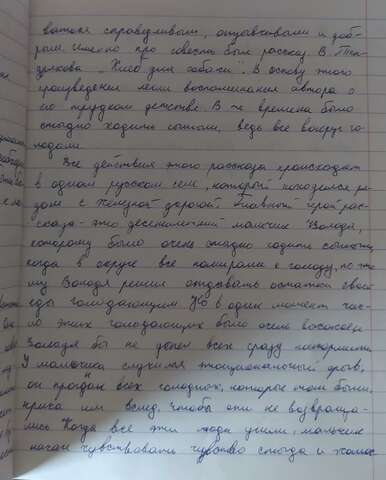 ваться справедливым, отзывчивым и доб-
рым. Именно про совесть был рассказ В. Тен-
дрякова „Хлеб для собаки". В основу этого
произведения легли воспоминания автора о
его трудном детстве. В те времена было
стыдно ходить сытыми, ведь все вокруг го-
лодали.
Все действия этого рассказа происходят
в одном русском селе, который находился ря-
дом с железной дорогой. Главный герой рас-
сказа - это десятилетний мальчик Володя,
которому было очень стыдно ходить сытым,
когда в округе все помирали с голоду, по это
му Володя решил отдавать остатки своей
еды голодающим. Но в один момент чис-
ло этих голодающих было очень
Володя бы не успел всех сразу накормить
У мальчика случился эмоциональный срыв,
он прогнал всех голодных, которые там были,
крича им вслед, чтобы они не возвраща-
лись. Когда все эти люди ушли, мальчик
начал чувствовать чувство стыда и жалос